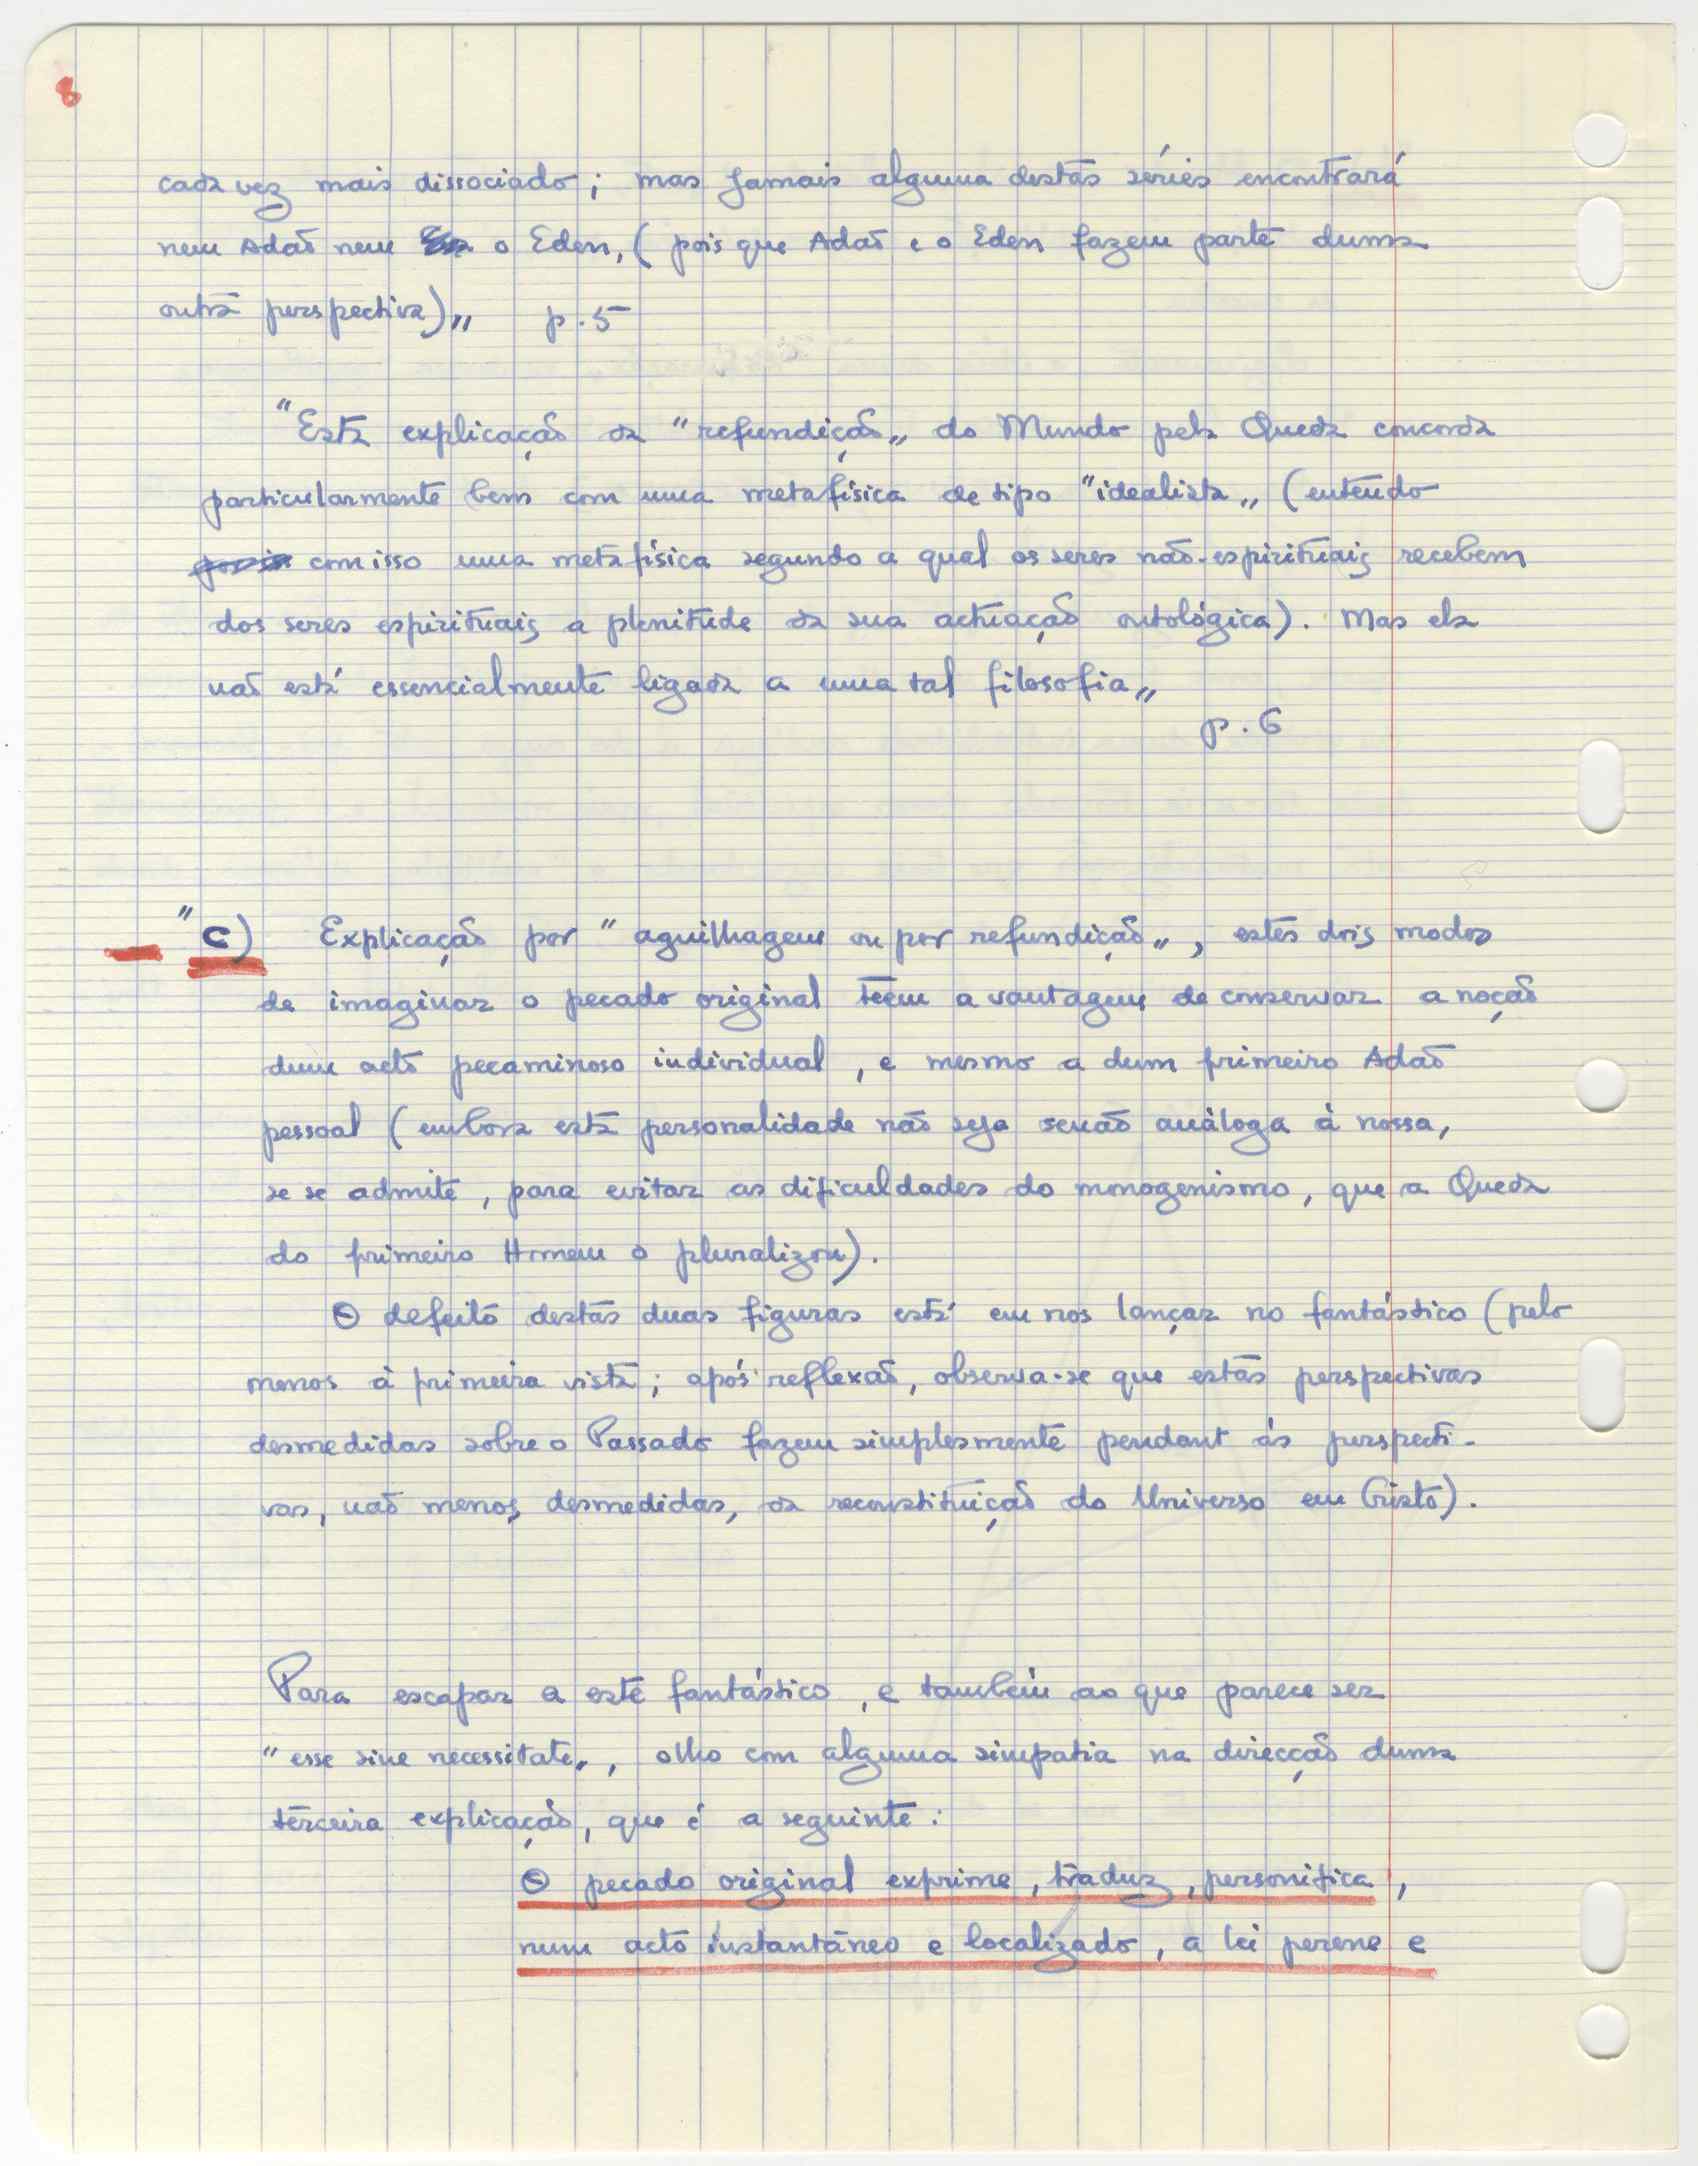 8
cada vez mais dissociado; mas jamais alguma destas séries encontrará
nem Adão nem o Eden, (pois que Adão e o Eden fazem parte duma
outra perspectiva)„ p. 5
"Esta explicação da "refundição„ do Mundo pela Queda concorda
particularmente bem com uma metafísica de tipo "idealista„ (entendo
com isso uma metafísica segundo a qual os seres não-espirituais recebem
dos seres espirituais a plenitude da sua actuação ontológica). Mas ela
não está essencialmente ligada a uma tal filosofia„
p. 6
" c) Explicação por "aguilhagem ou por refundição„, estes dois modos
de imaginar o pecado original teem a vantagem de conservar a noção
dum acto pecaminoso individual, e mesmo a dum primeiro Adão
pessoal (embora esta personalidade não seja senão análoga à nossa,
se se admite, para evitar as dificuldades do monogenismo, que a Queda
do primeiro Homem o pluralizou).
O defeito destas duas figuras está em nos lançar no fantástico (pelo
menos à primeira vista; após reflexão, observa-se que estas perspectivas
desmedidas sobre o Passado fazem simplesmente pendant às perspecti-
vas, não menos desmedidas, da reconstituição do Universo em Cristo).
Para escapar a este fantástico, e também ao que parece ser
"esse sine necessitate„, olho com alguma simpatia na direcção duma
terceira explicação, que é a seguinte:
O pecado original exprime, traduz, personifica,
num acto instantâneo e localizado, a lei perene e